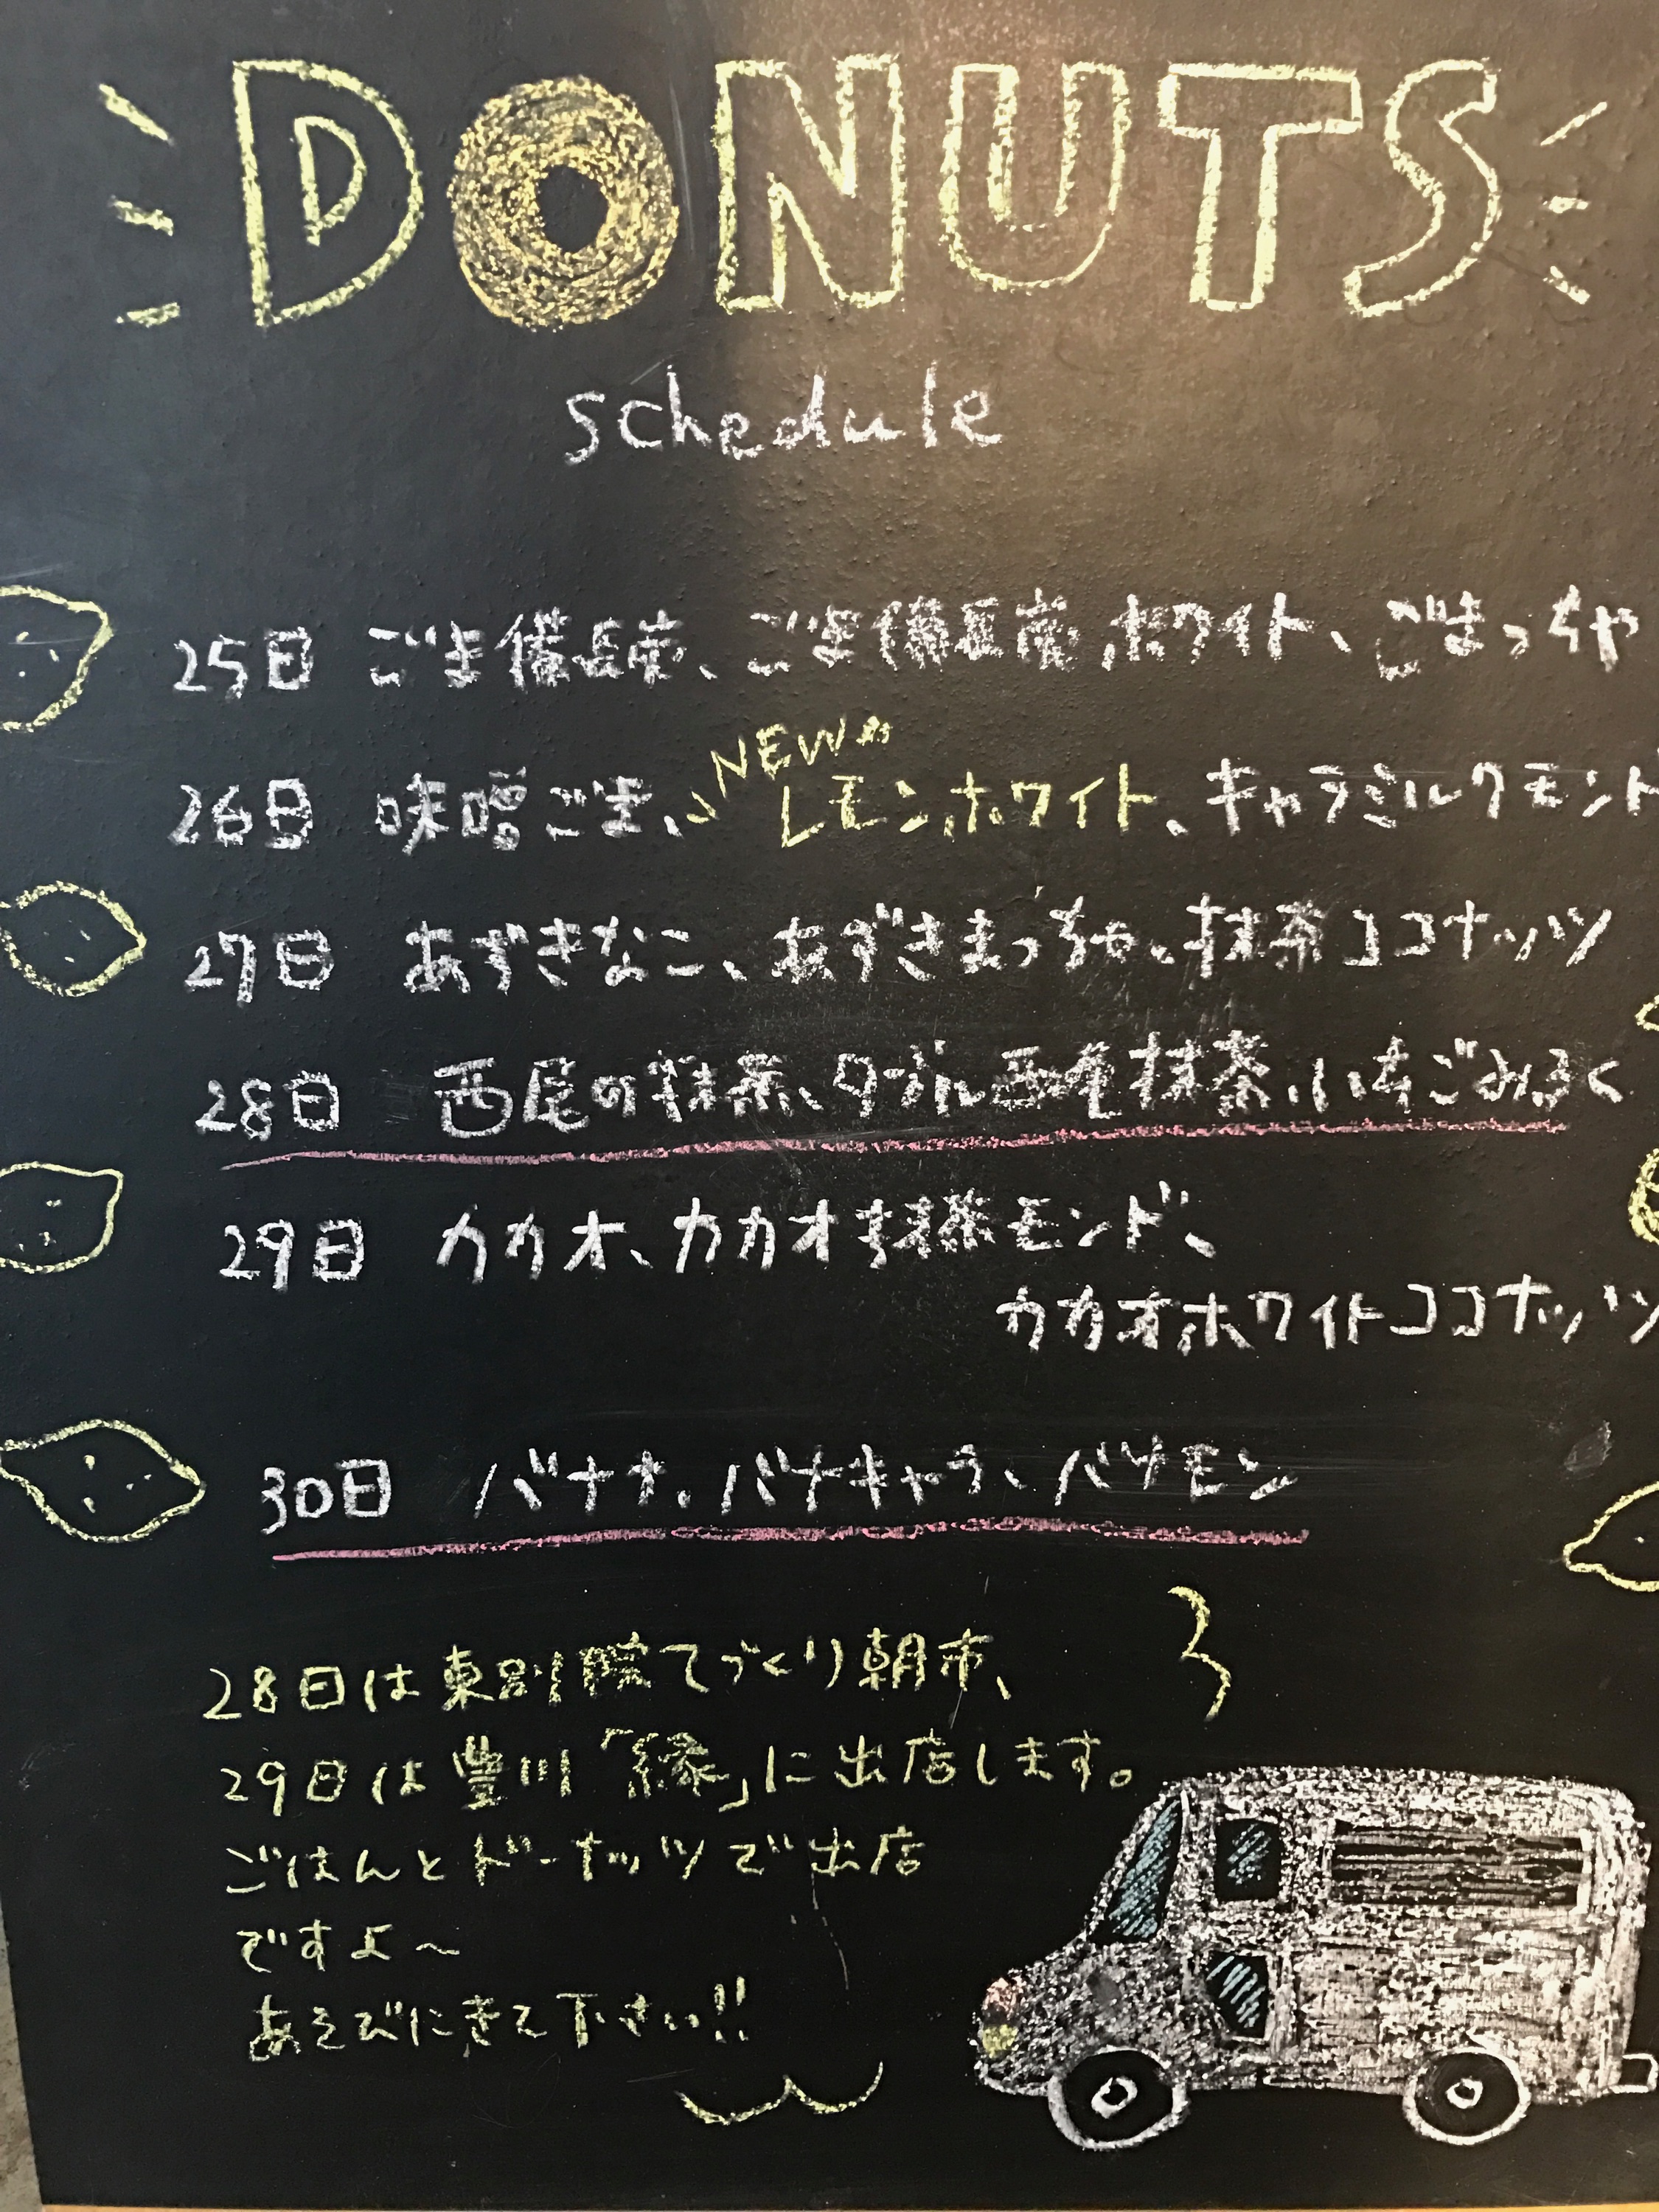 DONUTS
schedule
25日 ごま備長炭、ごま備長炭ホワイト、ごまっちゃ
NEW
26日 味噌ごま、レモンホワイト、キャラミルクモンド
27日 あずきなこ、あずきまっちゃ、抹茶ココナッツ
28日 西尾の抹茶、ダブル西尾抹茶、いちごみるく
29日 カカオ、カカオ抹茶モンド、
カカオホワイトココナッツ
30日 バナナ、バナキャラ、バナモン
28日は東別院てづくり朝市、
29日は豊川「縁」に出店します。
ごはんとドーナッツで出店
ですよ〜
あそびにきて下さい!!